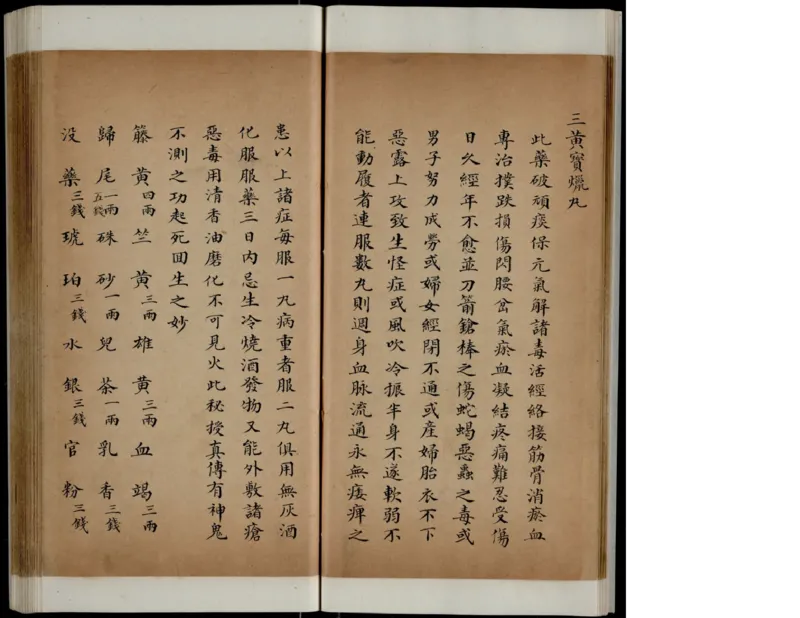 三黄寳爉丸
此藥破頑痰保元氣解諸毒活經絡接筋骨消瘀血
專治撲跌損傷閃腰岔氣瘀血凝結疼痛難忍受傷
日久經年不愈並刀箭鎗棒之傷蛇蝎惡蟲之毒或
男子努力成勞或婦女經閉不通或產婦胎衣不下
惡露上攻致生怪症或風吹冷振半身不遂軟弱不
能動履者連服數丸則週身血脉流通永無痿痺之
患以上諸症每服一丸病重者服二丸俱用無灰酒
化服服藥三日内忌生冷燒酒發物又能外敷諸瘡
惡毒用清香油磨化不可見火此秘授真傳有神鬼
不測之功起死回生之妙
籐黄四兩 竺黄三兩 雄黄三兩 血竭三兩
歸尾一兩五錢 硃砂一兩 兒茶一兩 乳香三錢
没藥三錢 琥珀三錢 水銀三錢 官粉三錢